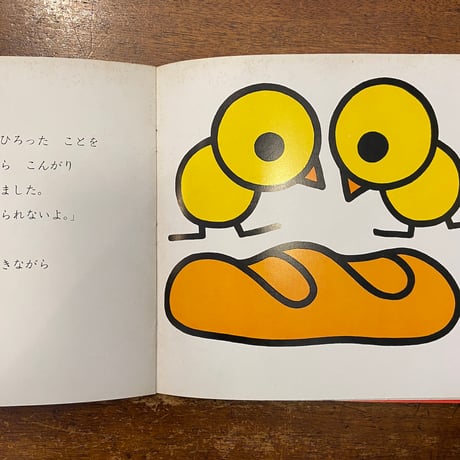 ひろった ことを
ら こんがり
ました。
られないよ。」
きながら